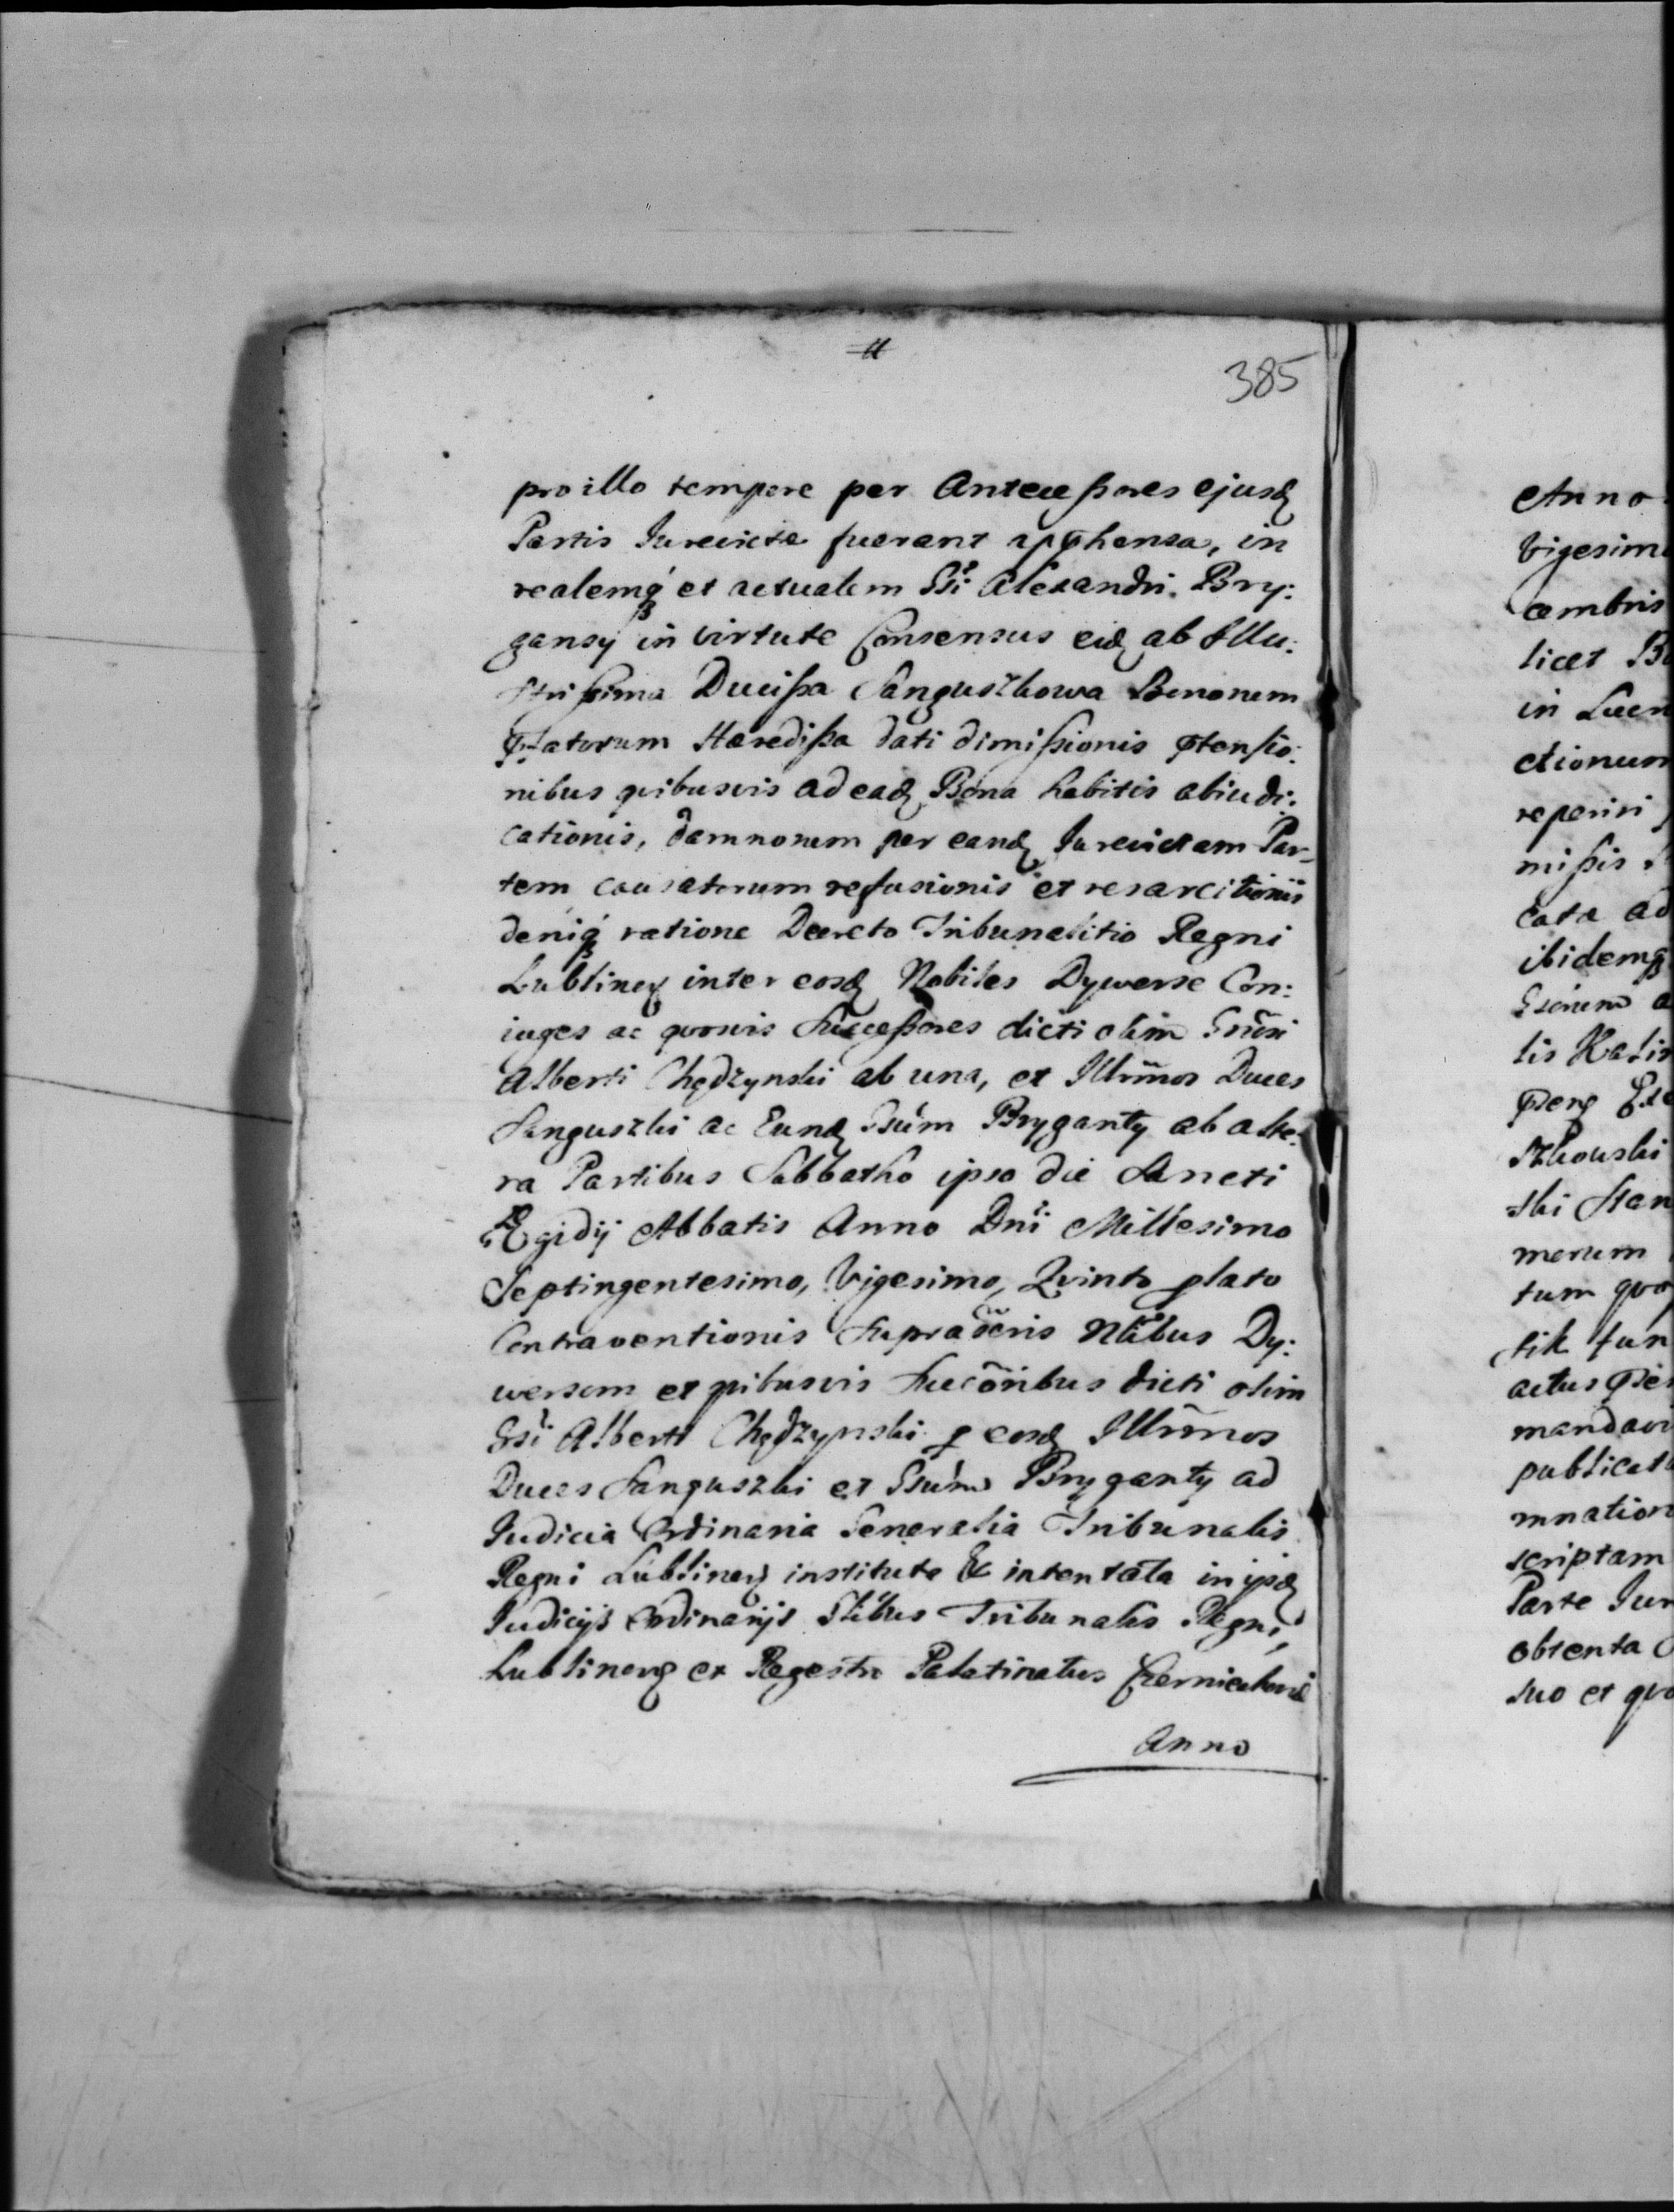 385
pro illo tempore per Antecessores ejusd
Partis Iurevictæ fuerant apphensa, in
realemq et actualem Gsi Alexandri Bry:
gansy in virtute Consensus eid ab Illu:
strissima Ducissa Sanguszkowa Bonorum
pfatorum Hæredissa dati dimissionis ptensio:
nibus quibusvis ad ead Bona habitis abiudi:
cationis, damnorum per eand Iurevictam Par-
tem causatorum refusionis et resarcitionis
deniq ratione Decreto Tribunalitio Regni
Lublinen inter eosd Nobiles Dywersc Con:
iuges ac quosvis Successores dicti olim Gnosi
Alberti Chędzynski ab una, et Illrmos Duces
Sanguszki ac Eund Gsum Bryganty ab alte:
ra Partibus Sabbatho ipso die Sancti
Ægidij Abbatis Anno Dni Millesimo
Septingentesimo, Vigesimo, Quinto plato
Contraventionis Supradictis Nlibus Dy:
wersom et quibusvis Succoribus dicti olim
Gsi Alberti Chędzynski p eosd Illrmos
Duces Sanguszki et Gsum Bryganty ad
Iudicia Ordinaria Generalia Tribunalis
Regni Lublinen instituta & intentata in ijsd
Iudicijs Ordinarijs Glibus Tribunalis Regni
Lublinens ex Regestro Palatinatus Czerniechoviæ
Anno
Anno
Vigesim
cembris
licet B
in Lucn
ctionum
reperiri
missis
cata ad
ibidemq
tis Halis
Szkowski
ski Stan
merum
tum quo
tik fun
actus
mandavi
publicat
mnation
scriptam
Parte Iur
obtenta
suo et quo